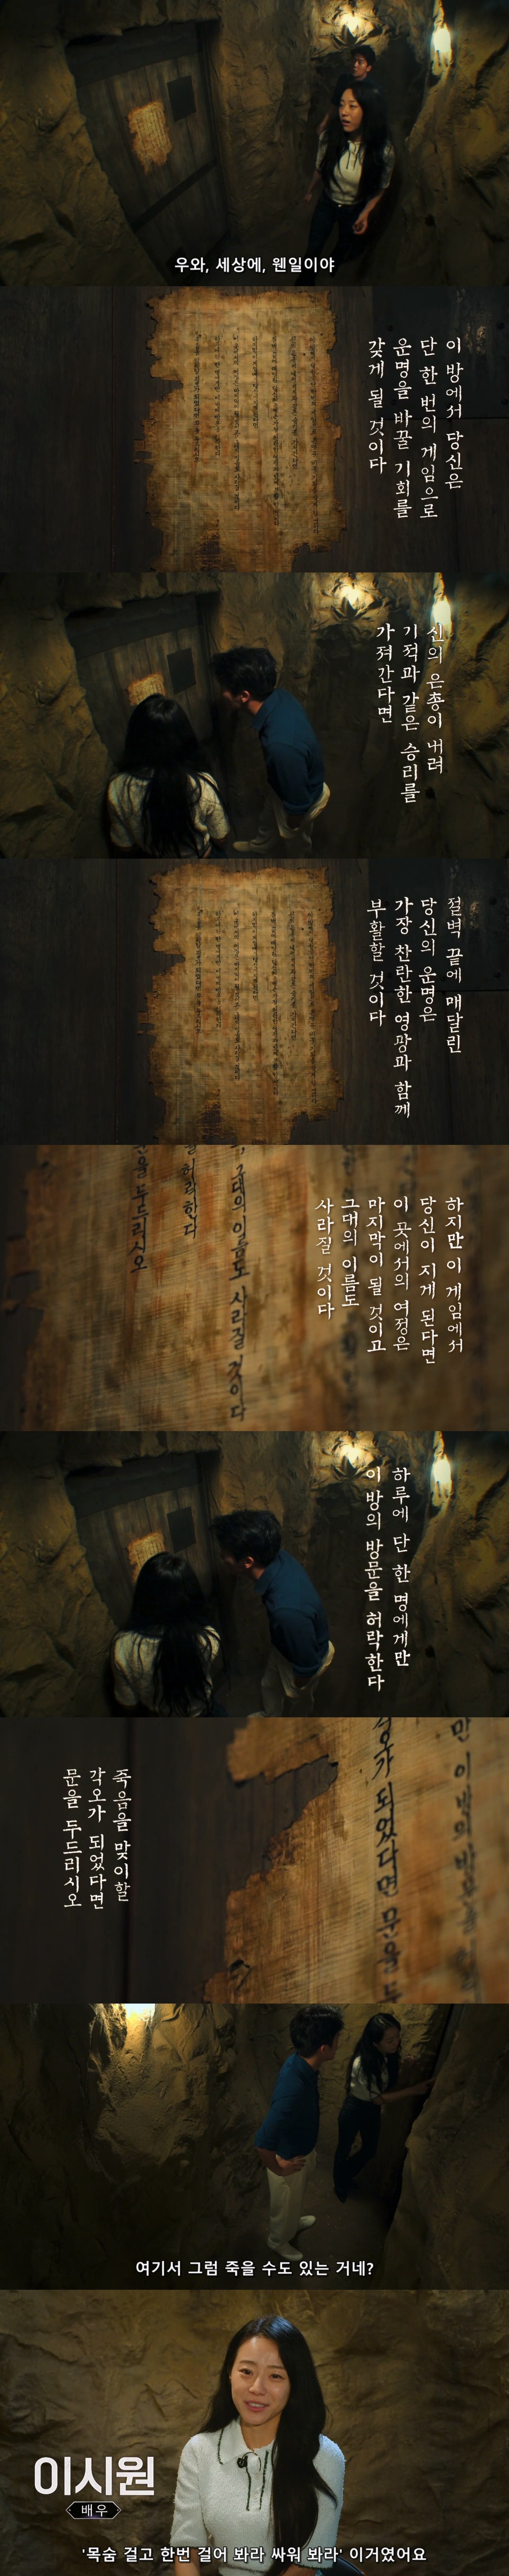 우와, 세상에, 웬일이야
이 방에서 당신은
단 한 번의 게임으로
운명을 바꿀 기회를
갖게 될 것이다
신의 은총이 내려
기적과 같은 승리를
가져간다면
절벽 끝에 매달린
당신의 운명은
가장 찬란한 영광과 함께
부활할 것이다
하지만 이 게임에서
당신이 지게 된다면
이 곳에서의 여정은
마지막이 될 것이고
그대의 이름도
사라질 것이다
그대의 이름도 사라질 것이다
허락한다
문을 두드리시오
하루에 단 한 명에게만
이 방의 방문을 허락한다
만 이 방의 방문을
각오가 되었다면 문을 두
죽음을 맞이할
각오가 되었다면
문을 두드리시오
여기서 그럼 죽을 수도 있는 거네?
이시원
배우
'목숨 걸고 한번 걸어 봐라 싸워 봐라' 이거였어요